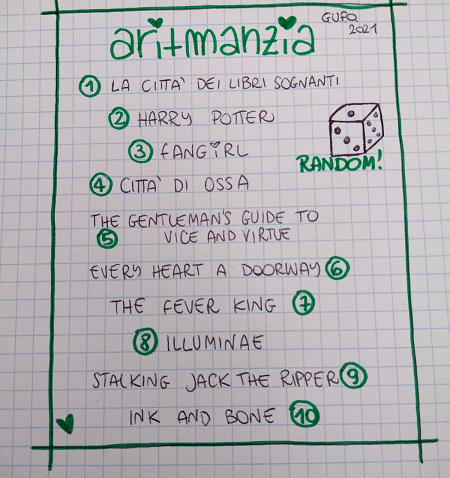 aritmanzia
GUFO
2021
1 LA CITTA' DEI LIBRI SOGNANTI
2 HARRY POTTER
3 FANGIRL
RANDOM!
4 CITTA' DI OSSA
THE GENTLEMAN'S GUIDE TO
5 VICE AND VIRTUE
EVERY HEART A DOORWAY 6
THE FEVER KING 7
8 ILLUMINAE
STALKING JACK THE RIPPER 9
INK AND BONE 10